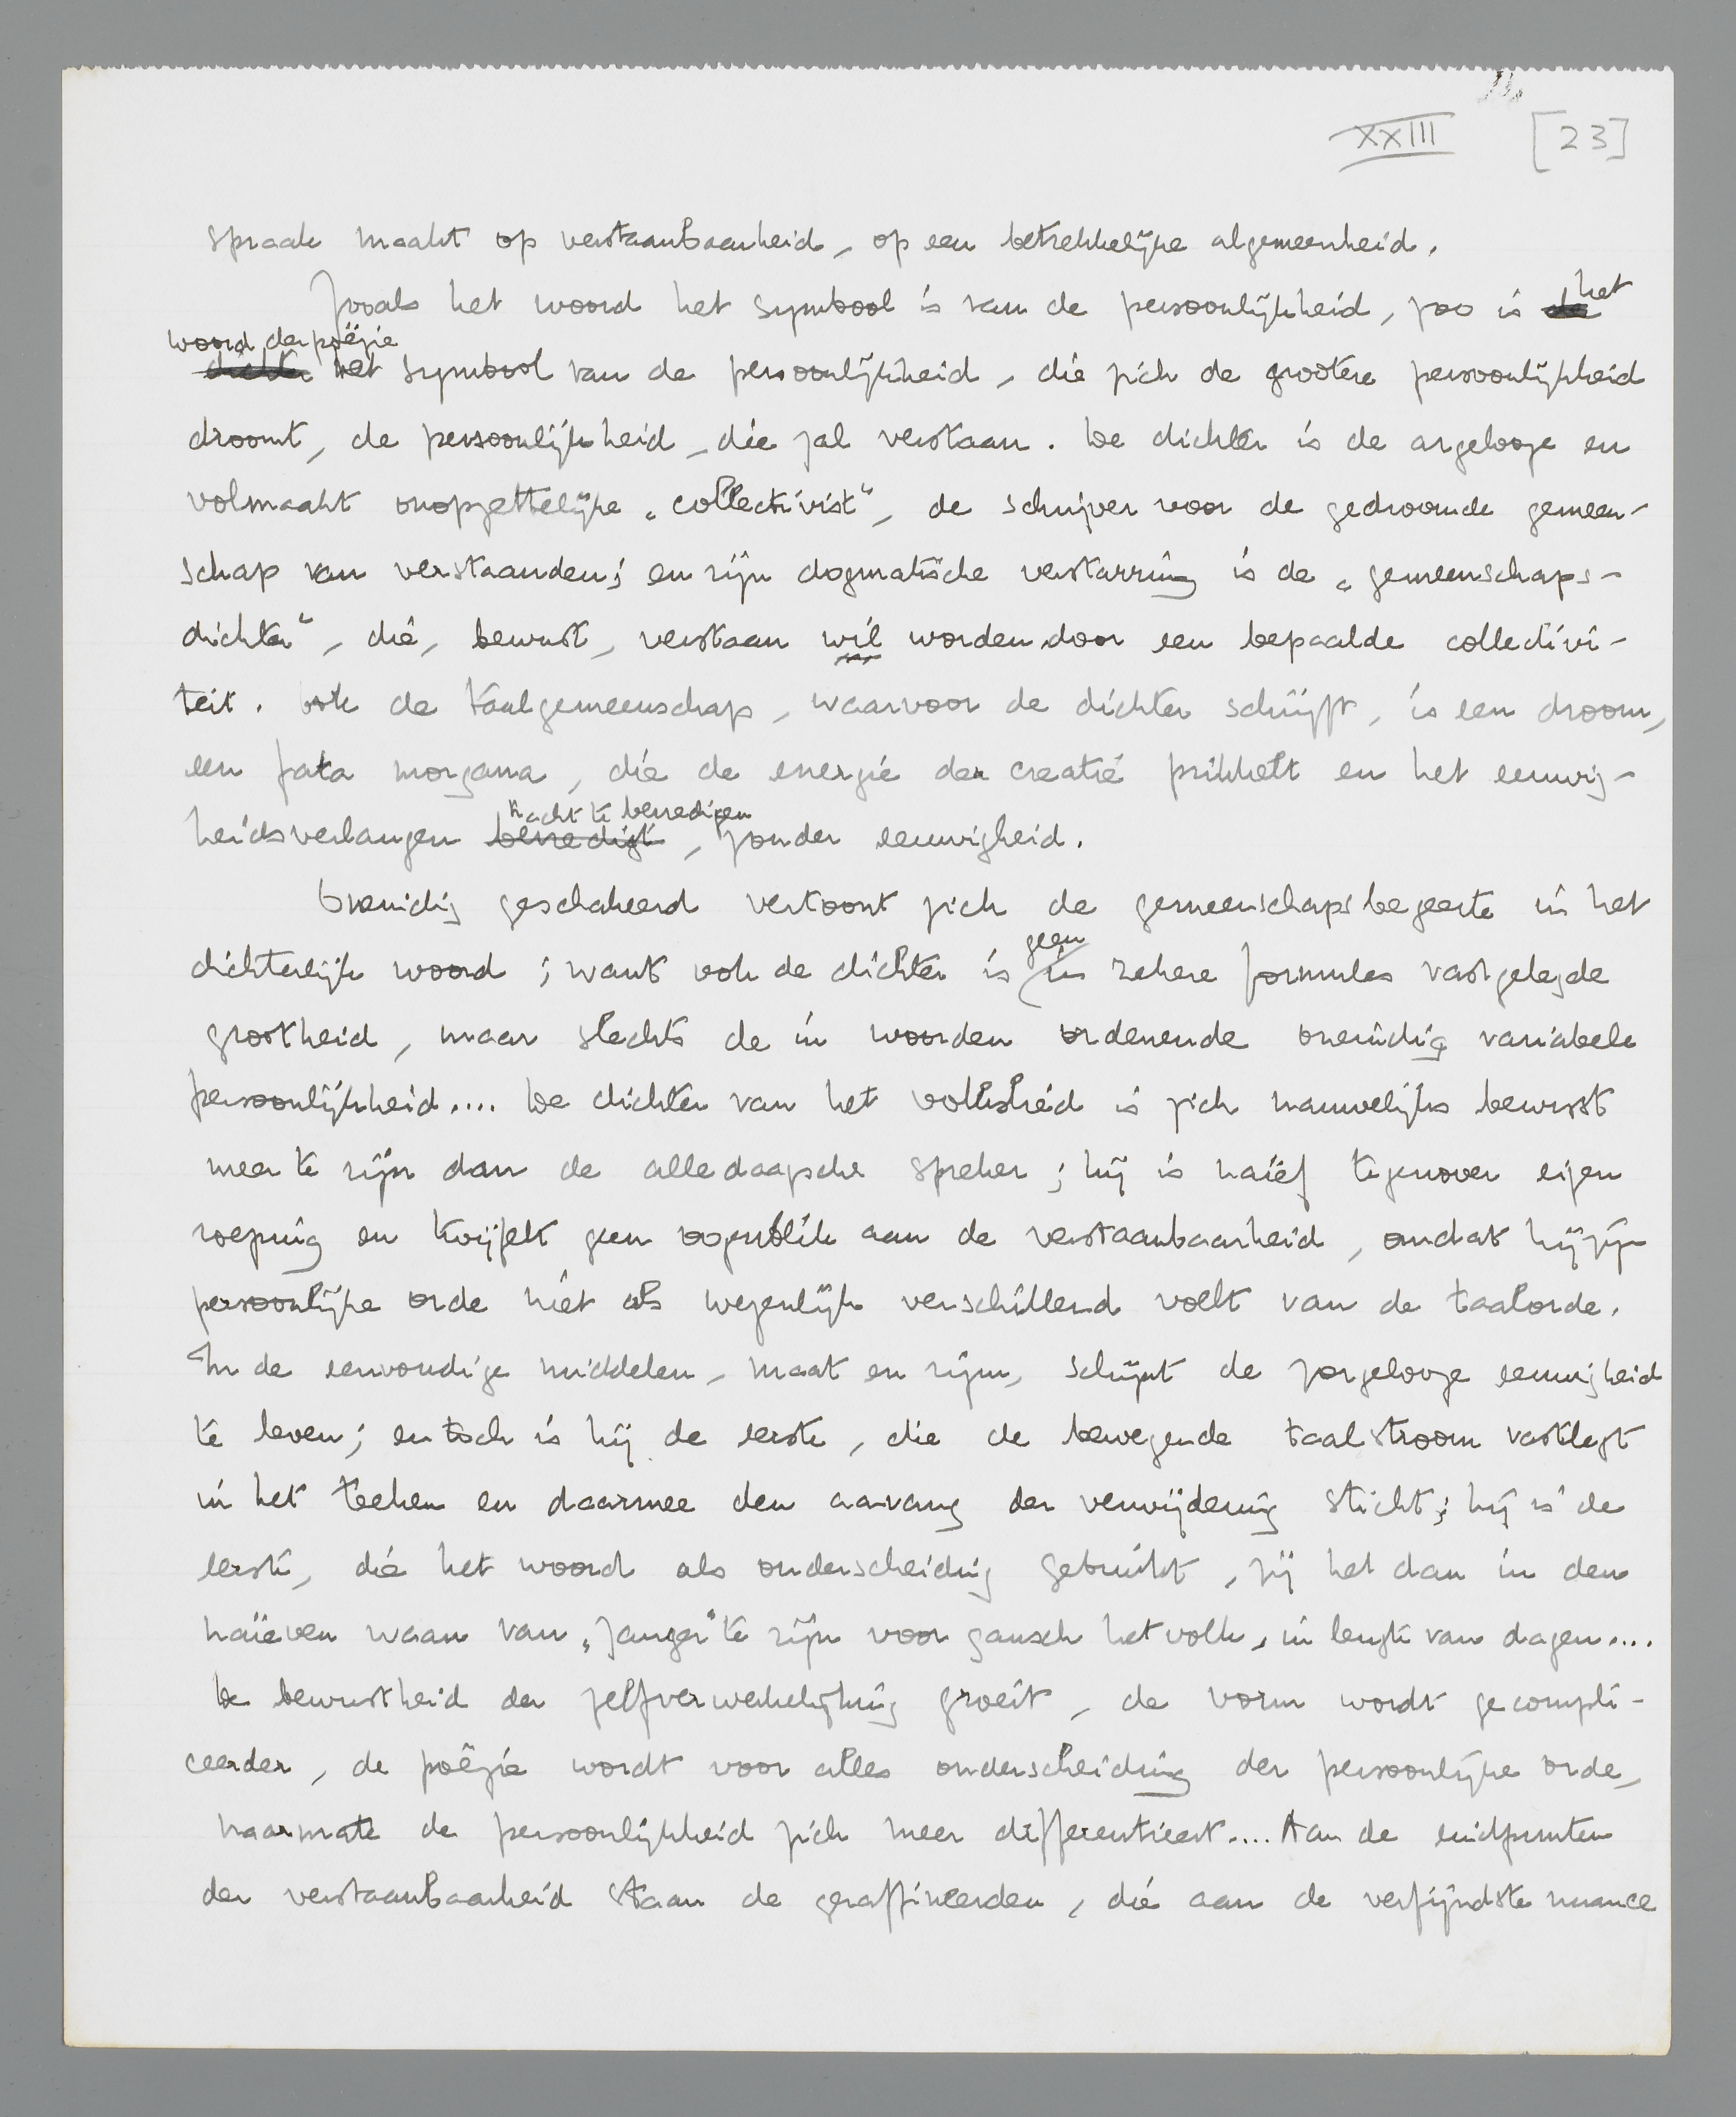 XXIII [23]
spraak maakt op verstaanbaarheid, op een betrekkelijke algemeenheid.
Zooals het woord het symbool is van de persoonlijkheid, zoo is de het
woord der poëzie
dichter het symbool van de persoonlijkheid, die zich de grootere persoonlijkheid
droomt, de persoonlijkheid, die zal verstaan. De dichter is de argelooze en
volmaakt onopzettelijke „collectivist”, de schrijver voor de gedroomde gemeen-
schap van verstaanden; en zijn dogmatische verstarring is de „gemeenschaps-
dichter”, die, bewust, verstaan wil worden door een bepaalde collectivi-
teit. Ook de taalgemeenschap, waarvoor de dichter schrijft, is een droom,
een fata morgana, die de energie der creatie prikkelt en het eeuwig-
tracht te bevredigen
heidsverlangen bevredigt, zonder eeuwigheid.
Oneindig geschakeerd vertoont zich de gemeenschapsbegeerte in het
geen
dichterlijk woord; want ook de dichter is in zekere formules vastgelegde
grootheid, maar slechts de in woorden ordenende oneindig variabele
persoonlijkheid.... De dichter van het volkslied is zich nauwelijks bewust
meer te zijn dan de alledaagsche spreker; hij is naïef tegenover eigen
roeping en twijfelt geen oogenblik aan de verstaanbaarheid, omdat hij zijn
persoonlijke orde niet als wezenlijk verschillend voelt van de taalorde.
In de eenvoudige middelen, maat en rijm, schijnt de zorgelooze eeuwigheid
te leven; en toch is hij de eerste, die de bewegende taalstroom vastlegt
in het teeken en daarmee den aanvang der verwijdering sticht; hij is de
eerste, die het woord als onderscheiding gebruikt, zij het dan in den
naïeven waan van „zanger” te zijn voor gansch het volk, in lengte van dagen....
De bewustheid der zelfverwerkelijking groeit, de vorm wordt gecompli-
ceerder, de poëzie wordt voor alles onderscheiding der persoonlijke orde,
naarmate de persoonlijkheid zich meer differentieert.... Aan de eindpunten
der verstaanbaarheid staan de geraffineerden, die aan de verfijndste nuance